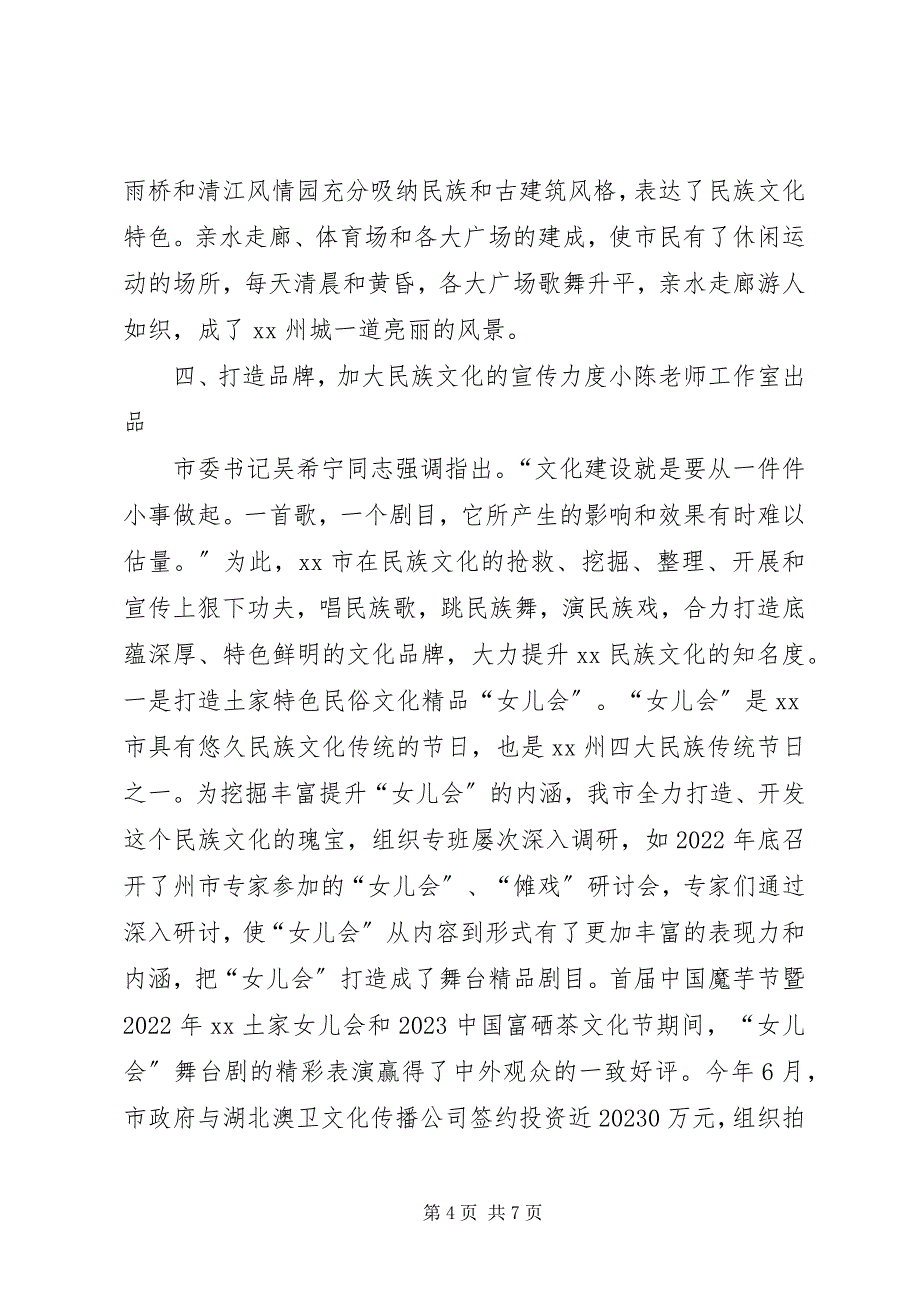 雨桥和清江风情园充分吸纳民族和古建筑风格，表达了民族文化
特色。亲水走廊、体育场和各大广场的建成，使市民有了休闲运
动的场所，每天清晨和黄昏，各大广场歌舞升平，亲水走廊游人
如织，成了 xx 州城一道亮丽的风景。
四、打造品牌，加大民族文化的宣传力度小陈老师工作室出
品
市委书记吴希宁同志强调指出。“文化建设就是要从一件件
小事做起。一首歌，一个剧目，它所产生的影响和效果有时难以
估量。〞为此，xx 市在民族文化的抢救、挖掘、整理、开展和
宣传上狠下功夫，唱民族歌，跳民族舞，演民族戏，合力打造底
蕴深厚、特色鲜明的文化品牌，大力提升 xx 民族文化的知名度。
一是打造土家特色民俗文化精品“女儿会〞。“女儿会〞是 xx
市具有悠久民族文化传统的节日，也是 xx 州四大民族传统节日
之一。为挖掘丰富提升“女儿会〞的内涵，我市全力打造、开发
这个民族文化的瑰宝，组织专班屡次深入调研，如 2022 年底召
开了州市专家参加的“女儿会〞、“傩戏〞研讨会，专家们通过
深入研讨，使“女儿会〞从内容到形式有了更加丰富的表现力和
内涵，把“女儿会〞打造成了舞台精品剧目。首届中国魔芋节暨
2022 年 xx 土家女儿会和 2023 中国富硒茶文化节期间，“女儿
会〞舞台剧的精彩表演赢得了中外观众的一致好评。今年 6 月，
市政府与湖北澳卫文化传播公司签约投资近 20230 万元，组织拍
第 4 页 共 7 页